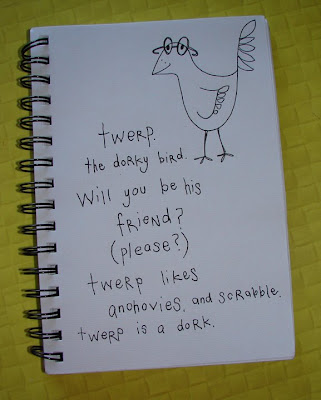 twerp.
the dorky bird.
Will you be his
friend?
(please?)
twerp likes
anchovies, and scrabble.
twerp is a dork.